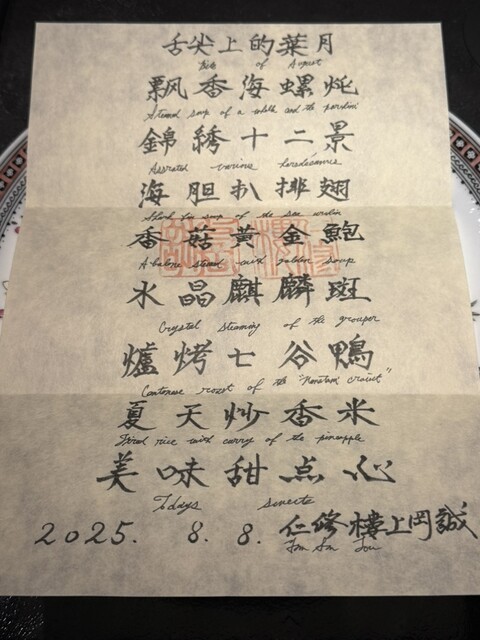 舌尖上的葉月
of August
飄香海螺炖
Steamed soup of a whelk and the
錦綉十二景
Assorted various horsdeuvres
海胆扒排翅
Shark fin soup of the sea urchin
香菇黄金鮑
Abalone steamed with golden soup
水晶麒麟斑
Crystal steaming of the grouper
爐烤七谷鴨
Cantonese roast of the
夏天炒香米
Fried rice with curry of the pineapple
美味甜点心
Todays
2025. 8. 8. 仁修樓上岡誠